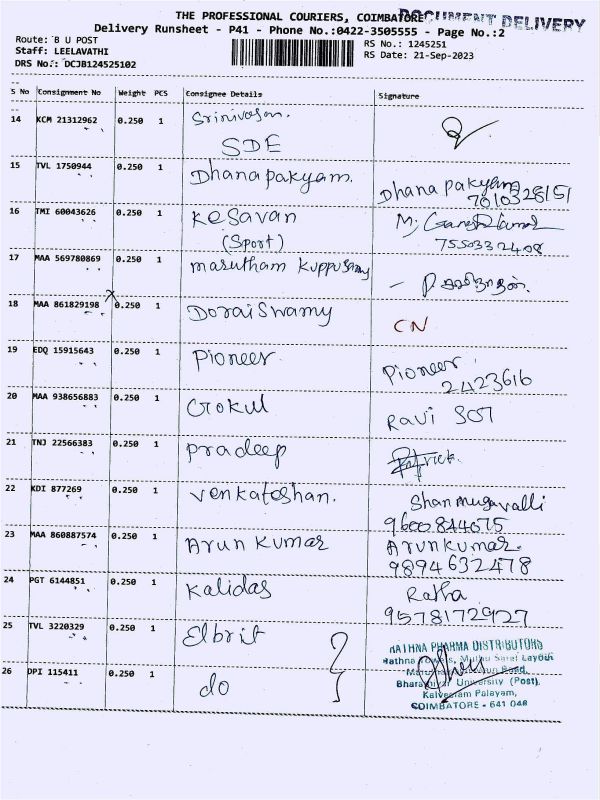 THE PROFESSIONAL COURIERS, COIMBATORE
DOCUMENT DELIVERY
Delivery Runsheet - P41 - Phone No.:0422-3505555 - Page No.:2
Route: B U POST
RS No.: 1245251
Staff: LEELAVATHI
RS Date: 21-Sep-2023
DRS No.: DCJB124525102
S No Consignment No Weight PCS Consignee Details Signature
14 KCM 21312962 0.250 1 Srinivasan.
SDE
15 TVL 1750944 0.250 1 Dhanapakyam. Dhanapakyam
7010328151
16 TMI 60043626 0.250 1 Kesavan
(Sport) 7550332408
17 MAA 569780869 0.250 1 marutham Kuppusamy
18 MAA 861829198 0.250 1 Doraiswamy CN
19 EDQ 15915643 0.250 1 Pioneer. Pioneer
2423616
20 MAA 938656883 0.250 1 Gokul Ravi
21 TNJ 22566383 0.250 1 pradeep
22 KDI 877269 0.250 1 venkateshan. Shanmugavalli
9600844675
23 MAA 860887574 0.250 1 Arun Kumar Arunkumar.
9894632478
24 PGT 6144851 0.250 1 Kalidas Ratha
9578172927
25 TVL 3220329 0.250 1 Elbrit RATHNA PHARMA DISTRIBUTORS
Rathna Towers, Layout
Road,
26 DPI 115411 0.250 1 do Bharathiyar University (Post),
Kalveeram Palayam,
COIMBATORE - 641 046